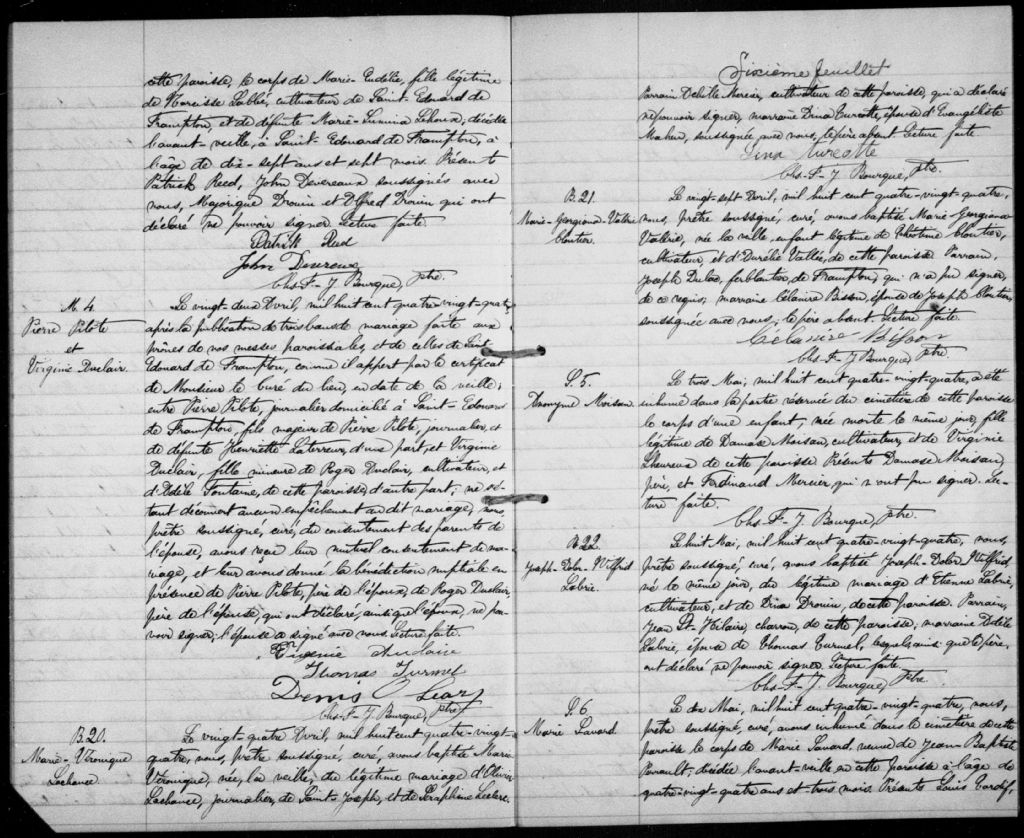 cette paroisse, le corps de Marie-Eudélie, fille légitime
de Narcisse Labbé, cultivateur de Saint-Edouard de
Frampton, et de défunte Marie-Lumina Leloux, décédée
l'avant-veille, à Saint-Edouard de Frampton, à
l'âge de dix-sept ans et sept mois. Présents
Patrick Reed, John Devereaux soussignés avec
nous, Majorique Drouin et Alfred Drouin qui ont
déclaré ne pouvoir signer. Lecture faite.
Patrick Reed
John Devreux
Chs-F-J Bourque, ptre.
M. 4
Pierre Pilote
et
Virginie Duclair
Le vingt-deux Avril, mil huit cent quatre-vingt-quatre,
après la publication de trois bans de mariage faite aux
prônes de nos messes paroissiales, et de celles de Saint
Edouard de Frampton, comme il appert par le certificat
de Monsieur le Curé du lieu, en date de la veille;
entre Pierre Pilote, journalier domicilié à Saint-Edouard
de Frampton, fils majeur de Pierre Pilote, journalier, et
de défunte Henriette Laterreur, d'une part; et Virginie
Duclair, fille mineure de Roger Duclair, cultivateur, et
d'Adèle Fontaine, de cette paroisse, d'autre part; ne s'é-
tant découvert aucun empêchement au dit mariage, nous,
prêtre soussigné, curé, du consentement des parents de
l'épouse, avons reçu leur mutuel consentement de ma-
riage, et leur avons donné la bénédiction nuptiale en
présence de Pierre Pilote, père de l'époux, de Roger Duclair,
père de l'épouse, qui ont déclaré, ainsi que l'époux ne pou-
voir signer; l'épouse a signé avec nous. Lecture faite.
Thomas Turmel
Denis
Chs-F-J. Bourque, ptre
B. 20.
Marie-Véronique
Lachance
Le vingt-quatre Avril, mil huit cent quatre-vingt-
quatre, nous, prêtre, soussigné, curé, avons baptisé Marie
Véronique, née, la veille, du légitime mariage d'Olivier
Lachance, journalier, de Saint-Joseph, et de Séraphine Leclerc.
Sixième feuillet
Parrain Achille Mercier, cultivateur de cette paroisse, qui a déclaré
ne pouvoir signer, marraine Dina Turcotte, épouse d'Evangéliste
Maheu, soussignée avec nous, le père absent. Lecture faite
Dina Turcotte
Chs-F-J Bourque, ptre.
B. 21.
Marie-Georgiana-Valérie
Cloutier.
Le vingt-sept Avril, mil huit cent quatre-vingt-quatre,
nous, prêtre soussigné, curé, avons baptisé Marie-Georgiana
Valérie, née la veille, enfant légitime de Théotime Cloutier,
cultivateur, et d'Aurélie Vallée, de cette paroisse. Parrain,
Joseph Dulac, ferblantier, de Frampton, qui n'a pu signer,
de ce requis; marraine Célanire Bisson, épouse de Joseph Cloutier,
soussignée avec nous; le père absent. Lecture faite.
Celanire Bisson
Chs-F-J Bourque, ptre
S. 5.
Anonyme Moisan.
Le trois Mai, mil huit cent quatre-vingt-quatre, a été
inhumé dans la partie réservée du cimetière de cette paroisse
le corps d'une enfant, née morte le même jour, fille
légitime de Damase Moisan, cultivateur, et de Virginie
Lheureux de cette paroisse. Présents Damase Moisan,
père, et Ferdinand Mercier qui n'ont pu signer. Lec-
ture faite.
Chs-F-J. Bourque, ptre.
B. 22.
Wilfrid
Labrie.
Le huit Mai, mil huit cent quatre-vingt-quatre, nous,
prêtre soussigné, curé, avons baptisé Wilfrid
né le même jour, du légitime mariage d'Etienne Labrie,
cultivateur, et de Dina Drouin, de cette paroisse. Parrain,
Jean St-Hilaire, charron, de cette paroisse; marraine Adèle
Labrie, épouse de Thomas Turmel, lesquels ainsi que le père,
ont déclaré ne pouvoir signer. Lecture faite.
Chs-F-J. Bourque, ptre.
S. 6
Marie Savard.
Le dix Mai, mil huit cent quatre-vingt-quatre, nous,
prêtre soussigné, curé, avons inhumé dans le cimetière de cette
paroisse le corps de Marie Savard, veuve de Jean-Baptiste
Perreault, décédée l'avant-veille en cette paroisse à l'âge de
quatre-vingt-quatre ans et trois mois. Présents Louis Tardif,